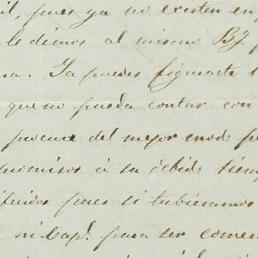 il, pues ya no existen en
le dimos al mismo By
na. Ya puedes figurarte
que no pueda contar con
procure del mejor modo p
promisos á su debido tiemp
pues si tubieramos
ni cap.l para ser comer